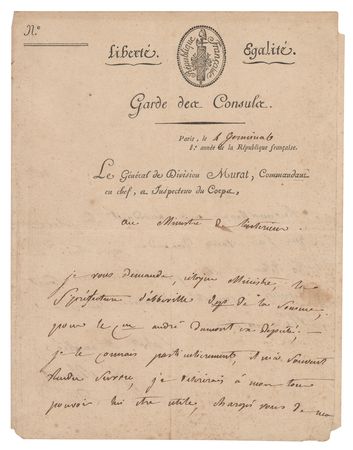 N.°
Liberté. Egalité.
République Française
Garde des Consuls.
Paris, le 8 Germinal
1.e année de la République française.
Le Général de Division Murat, Commandant
en chef, et Inspecteur du Corps,
au Ministre de l'interieur
je vous demande, citoyen Ministre, la
S/préfecture d'abbeville dépt de la Somme
pour le Cen andré Dumont ex député;
je le connais particulierement, il m'a souvent
rendu service, je désirerais à mon tour
pouvoir lui être utile, chargés vous de ma